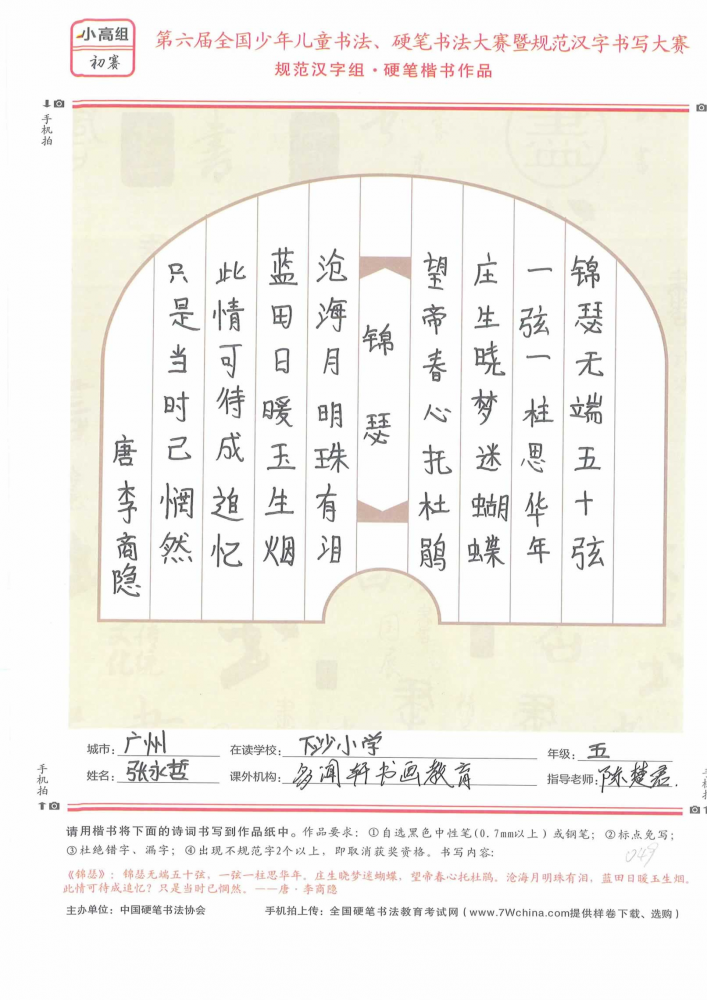 小高组
初赛
第六届全国少年儿童书法、硬笔书法大赛暨规范汉字书写大赛
规范汉字组·硬笔楷书作品
手机拍
锦瑟无端五十弦
一弦一柱思华年
庄生晓梦迷蝴蝶
望帝春心托杜鹃
锦瑟
沧海月明珠有泪
蓝田日暖玉生烟
此情可待成追忆
只是当时已惘然
唐李商隐
城市：广州
在读学校：下沙小学
年级：五
姓名：张永哲
课外机构：多闻轩书画教育
指导老师：陈楚君.
手机拍
请用楷书将下面的诗词书写到作品纸中。作品要求：①自选黑色中性笔(0.7mm以上)或钢笔；②标点免写；
③杜绝错字、漏字；④出现不规范字2个以上，即取消获奖资格。书写内容：
049
《锦瑟》：锦瑟无端五十弦，一弦一柱思华年。庄生晓梦迷蝴蝶，望帝春心托杜鹃。沧海月明珠有泪，蓝田日暖玉生烟。
此情可待成追忆？只是当时已惘然。——唐·李商隐
主办单位：中国硬笔书法协会
手机拍上传：全国硬笔书法教育考试网（www.7Wchina.com提供样卷下载、选购）